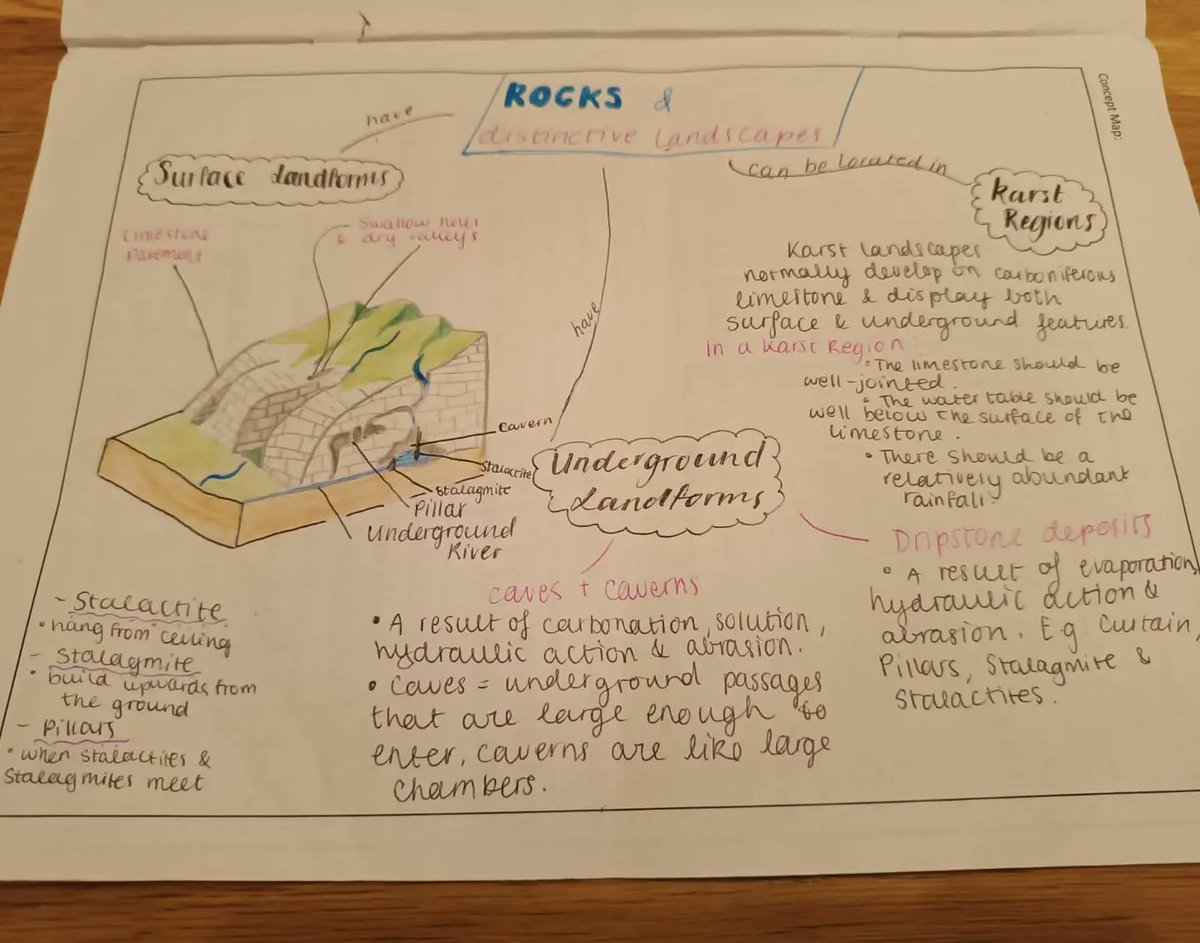 Concept Map:
ROCKS &
distinctive landscapes
have
Surface Landforms
can be located in
Karst
Regions
Limestone
pavement
Swallow holes
& dry valleys
have
Karst landscapes
normally develop on carboniferous
limestone & display both
surface & underground features.
in a Karst Region:
• The limestone should be
well-jointed.
• The water table should be
well below the surface of the
limestone.
• There should be a
relatively abundant
rainfall.
Cavern
Stalactite
Stalagmite
Pillar
Underground
River
Underground
Landforms
Dripstone deposits
• A result of evaporation,
hydraulic action &
abrasion. Eg Curtain,
Pillars, Stalagmite &
Stalactites.
caves + caverns
• A result of carbonation, solution,
hydraulic action & abrasion.
• Caves = underground passages
that are large enough to
enter, caverns are like large
chambers.
- Stalactite
• hang from ceiling
- Stalagmite
• build upwards from
the ground
- Pillars
• when Stalactites &
Stalagmites meet